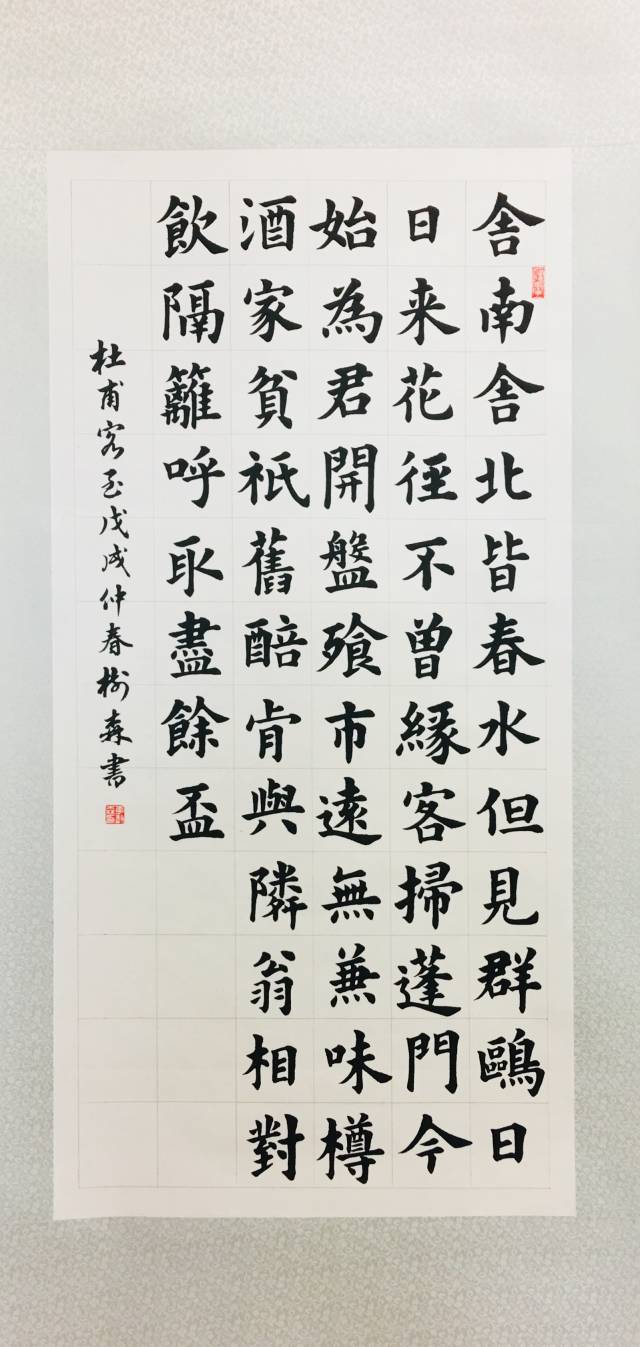 舍南舍北皆春水但見群鷗日
日来花徑不曾緣客掃蓬門今
始為君開盤飧市遠無兼味樽
酒家貧祇舊醅肯與隣翁相對
飲隔籬呼取盡餘盃
杜甫客至戊戌仲春樹森書